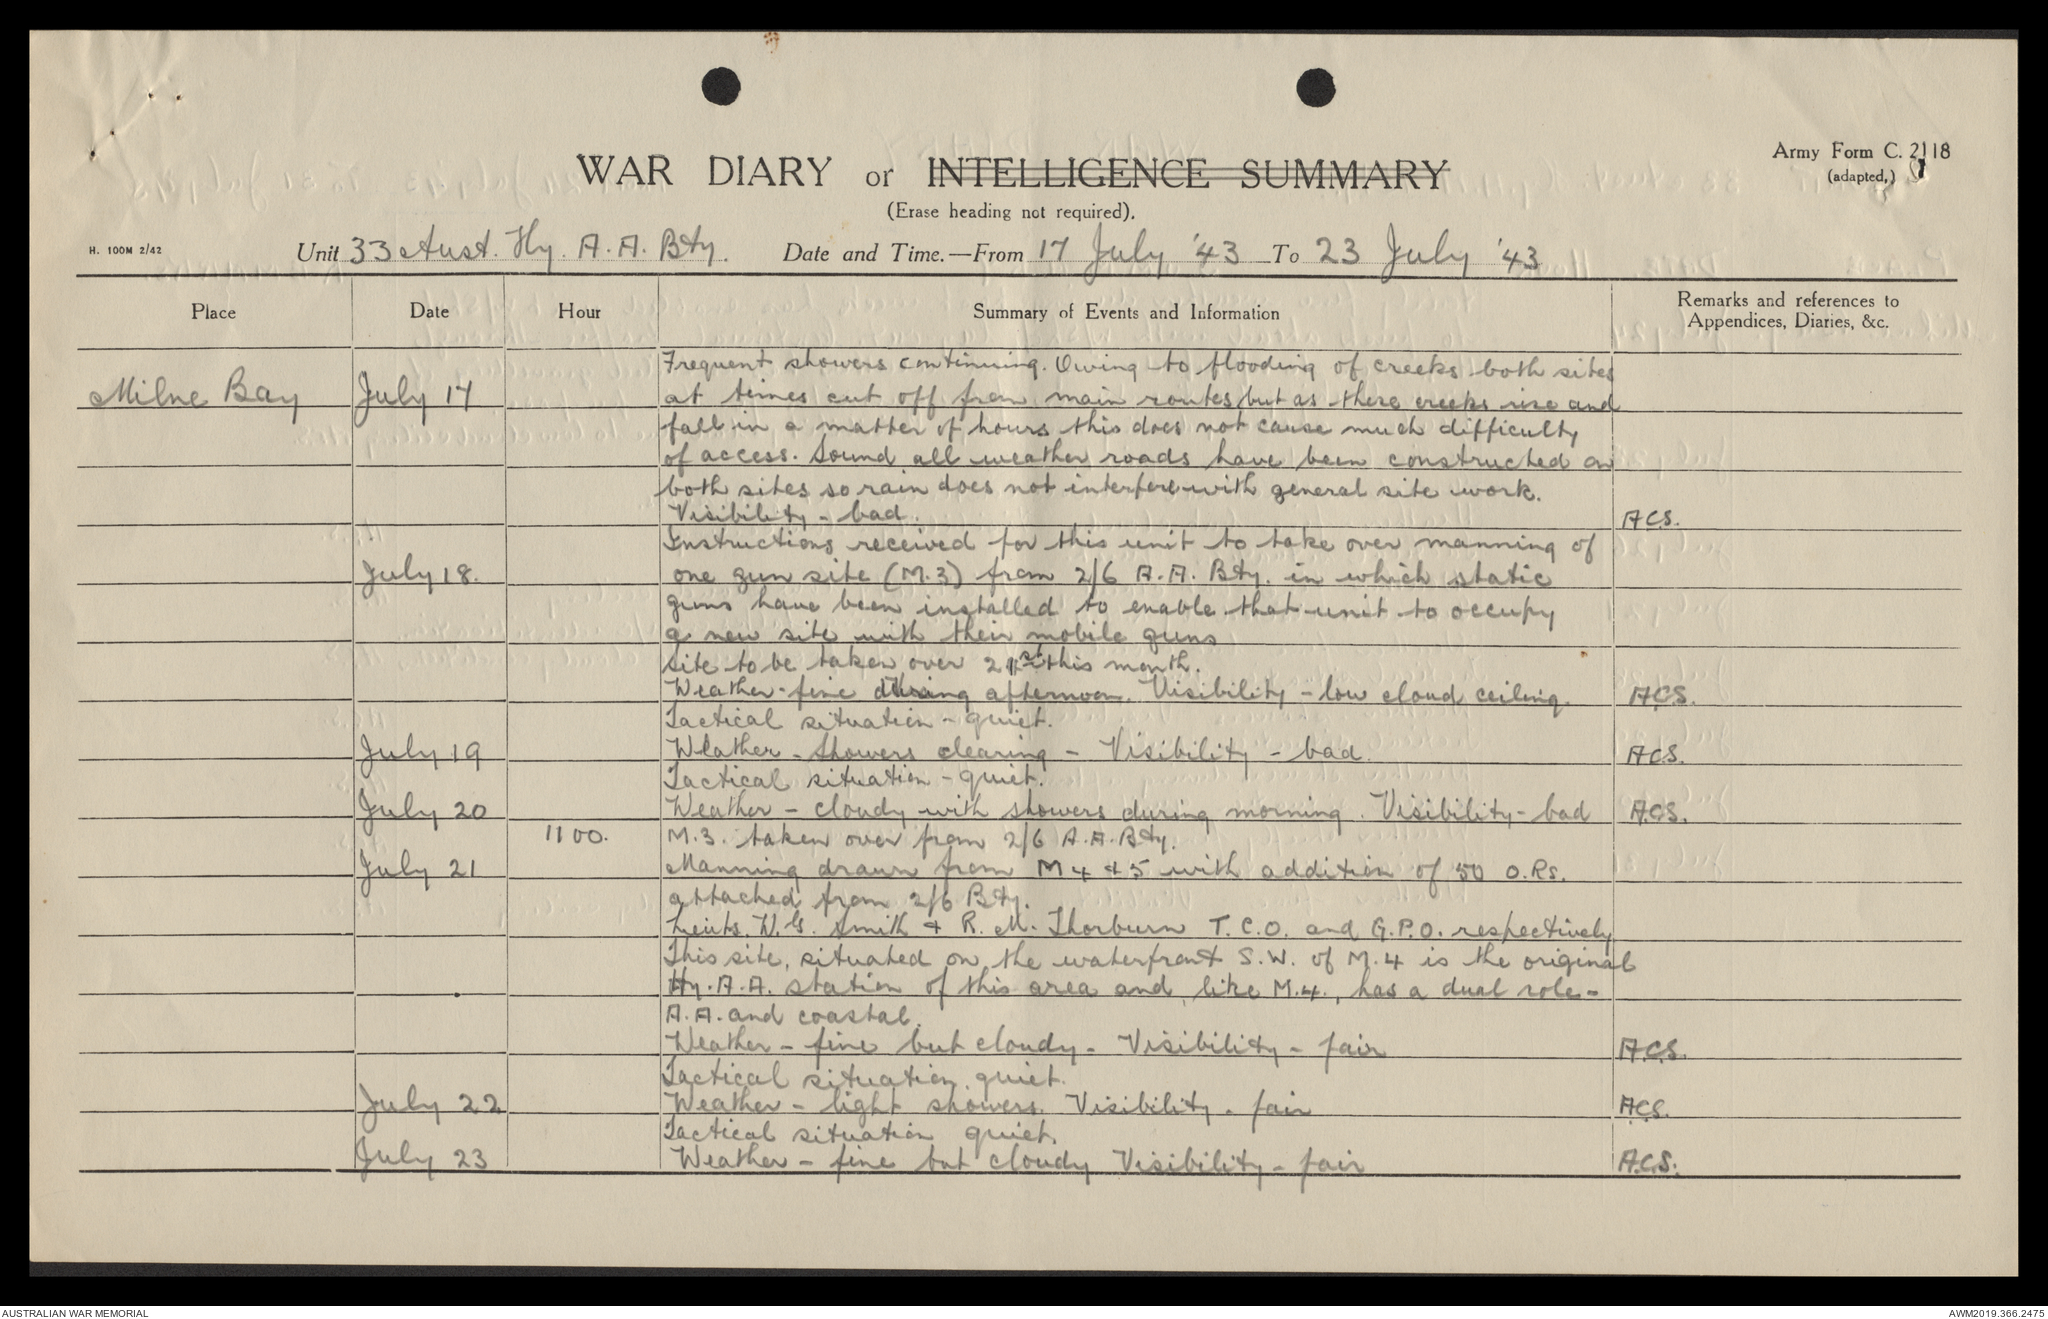 Army Form C. 2118
(adapted,)
WAR DIARY or INTELLIGENCE SUMMARY
(Erase heading not required).
H. 100M 2/42
Unit 33 Aust. Hy. A.A. Bty. Date and Time.—From 17 July '43 To 23 July '43
Place Date Hour Summary of Events and Information Remarks and references to
Appendices, Diaries, &c.
Frequent showers continuing. Owing to flooding of creeks both sites
Milne Bay July 17 at times cut off from main routes, but as these creeks rise and
fall in a matter of hours this does not cause much difficulty
of access. Sound all weather roads have been constructed on
both sites so rain does not interfere with general site work.
Visibility - bad. A.C.S.
Instructions received for this unit to take over manning of
July 18. one gun site (M.3) from 2/6 A.A. Bty. in which static
guns have been installed to enable that unit to occupy
a new site with their mobile guns
Site to be taken over 21st this month.
Weather - fine during afternoon. Visibility - low cloud ceiling. A.C.S.
Tactical situation - quiet.
July 19 Weather - Showers clearing - Visibility - bad. A.C.S.
Tactical situation - quiet.
July 20 Weather - cloudy with showers during morning. Visibility - bad A.C.S.
1100. M.3. taken over from 2/6 A.A. Bty.
July 21 Manning drawn from M 4 + 5 with addition of 50 O.Rs.
attached from 2/6 Bty.
Lieuts. W.G. Smith + R.M. Thorburn T.C.O. and G.P.O. respectively
This site, situated on the waterfront S.W. of M.4 is the original
Hy. A.A. station of this area and, like M.4., has a dual role -
A.A. and coastal.
Weather - fine but cloudy - Visibility - fair A.C.S.
Tactical situation. quiet.
July 22 Weather - light showers. Visibility - fair A.C.S.
Tactical situation quiet.
July 23 Weather - fine but cloudy Visibility - fair A.C.S.
AUSTRALIAN WAR MEMORIAL AWM2019.366.2475